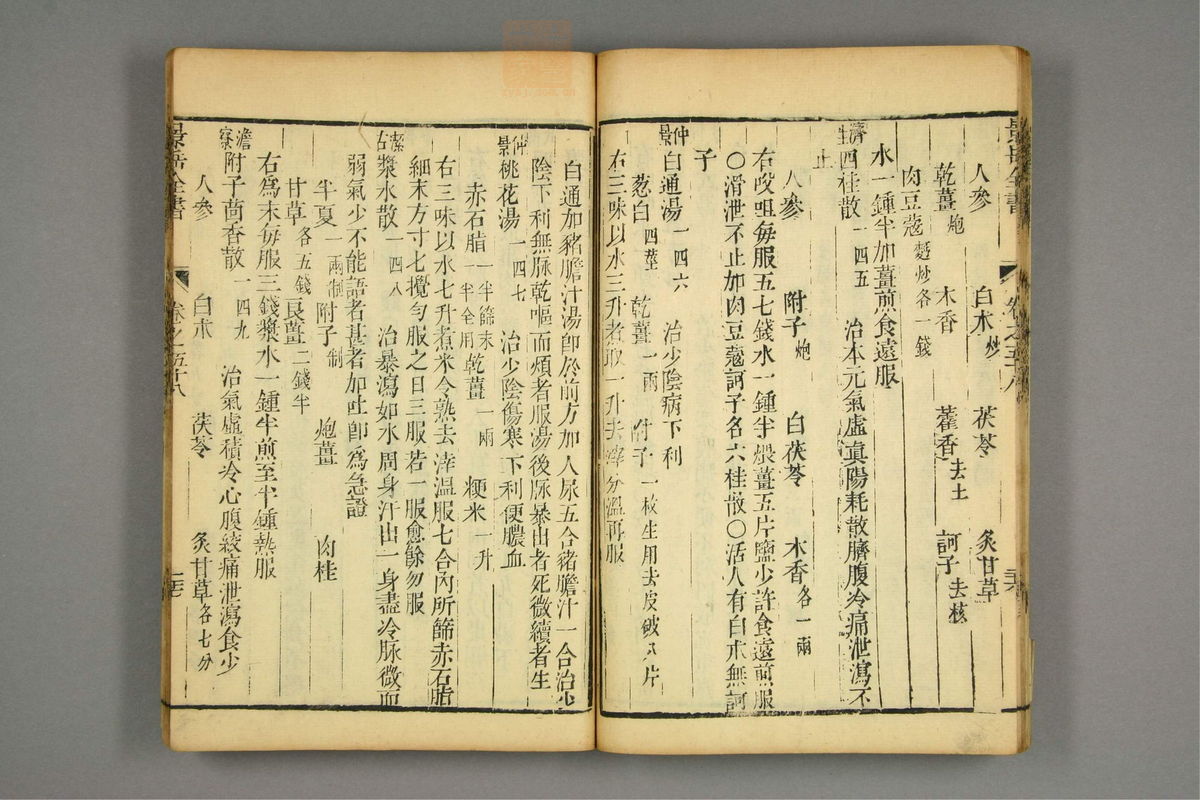 景岳全書 卷之五十八
人參 白朮炒 茯苓 炙甘草
乾薑炮 木香 藿香去土 訶子去核
肉豆蔻麪炒各一錢
水一鍾半加薑煎食遠服
濟生四桂散一四五 治本元氣虛眞陽耗散臍腹冷痛泄瀉不
止
人參 附子炮 白茯苓 木香各一兩
右㕮咀每服五七錢水一鍾半煨薑五片鹽少許食遠煎服
○滑泄不止加肉豆蔻訶子名六桂散○活人有白朮無訶
子
仲景白通湯一四六 治少陰病下利
葱白四莖 乾薑一兩 附子一枚生用去皮破八片
右三味以水三升煮取一升去滓分溫再服
白通加豬膽汁湯卽於前方加人尿五合豬膽汁一合治少
陰下利無脉乾嘔而煩者服湯後脉暴出者死微續者生
仲景桃花湯一四七 治少陰傷寒下利便膿血
赤石脂一半篩末一半全用 乾薑一兩 粳米一升
右三味以水七升煮米令熟去滓溫服七合內所篩赤石脂
細末方寸七攪勻服之日三服若一服愈餘勿服
潔古漿水散一四八 治暴瀉如水周身汗出一身盡冷脉微而
弱氣少不能語者甚者加吐卽爲急證
半夏一兩制 附子制 炮薑 肉桂
甘草各五錢 良薑二錢半
右爲末每服三錢漿水一鍾半煎至半鍾熱服
澹寮附子茴香散一四九 治氣虛積冷心腹絞痛泄瀉食少
人參 白朮 茯苓 炙甘草各七分
景岳全書 卷之五十八